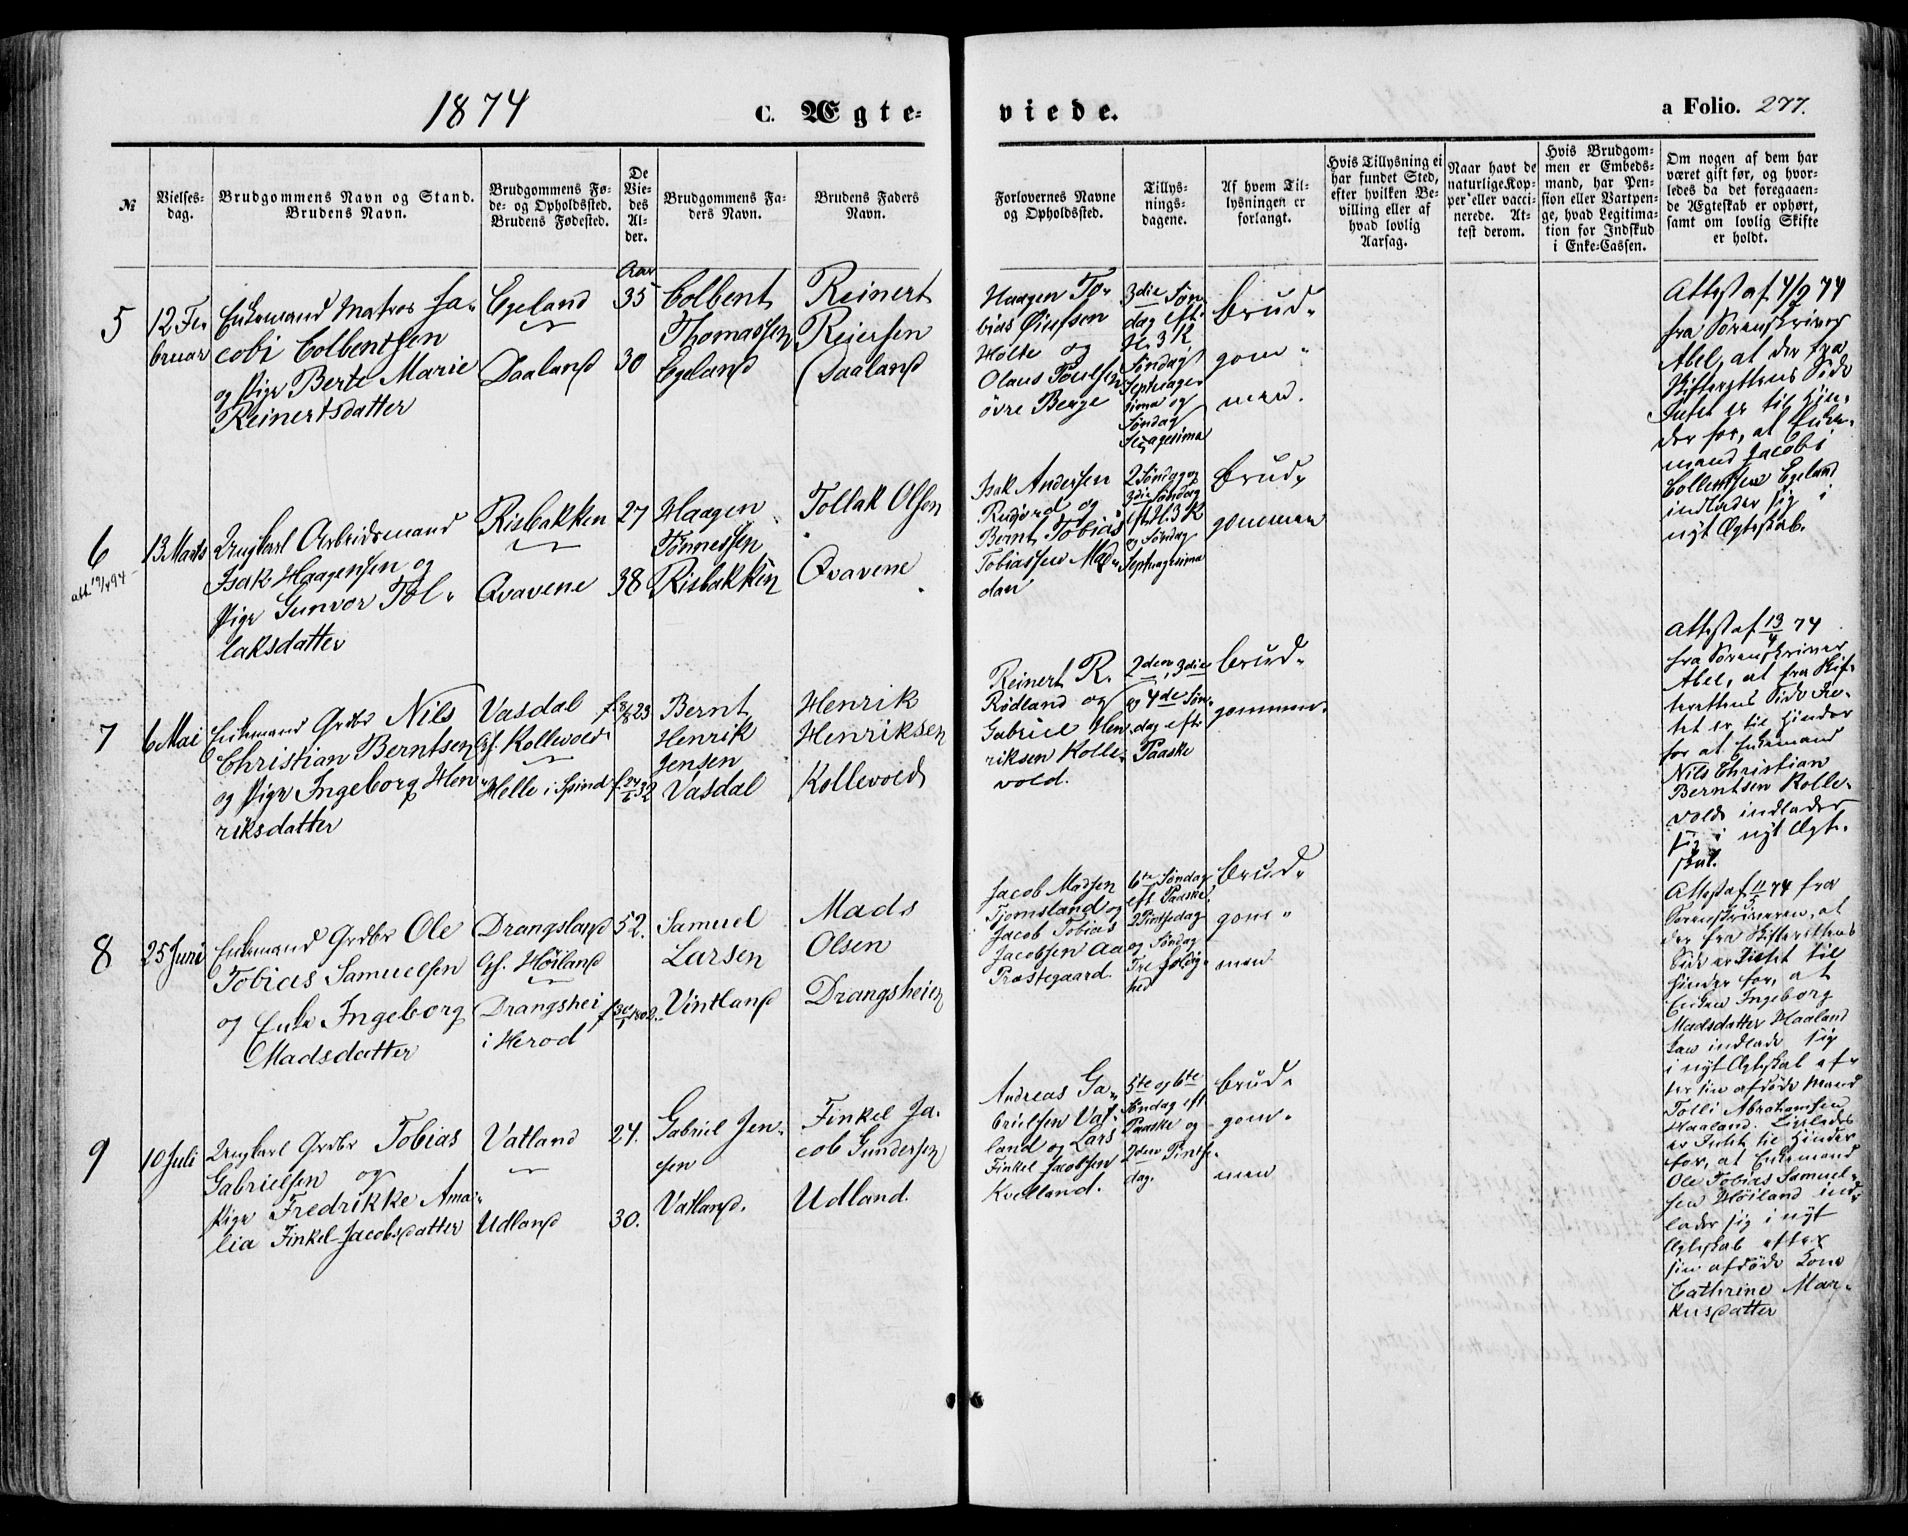 1874
C. Ægte-
viede.
a Folio. 277.
№
Vielses-
dag.
Brudgommens Navn og Stand.
Brudens Navn.
Brudgommens Fø-
de- og Opholdssted.
Brudens Fødested.
De
Vie-
des
Al-
der.
Brudgommens Fa-
ders Navn.
Brudens Faders
Navn.
Forlovernes Navne
og Opholdssted.
Tillys-
nings-
dagene.
Af hvem Til-
lysningen er
forlangt.
Hvis Tillysning ei
har fundet Sted,
efter hvilken Be-
villing eller af
hvad lovlig
Aarsag.
Naar havt de
naturlige Kop-
per eller vacci-
nerede. At-
test derom.
Hvis Brudgom-
men er Embeds-
mand, har Pen-
sion eller Vartpen-
ge, hvad Legitima-
tion for Indskud
i Enke-Cassen.
Om nogen af dem har
været gift før, og hvor-
ledes da det foregaaen-
de Ægteskab er ophørt,
samt om lovlig Skifte
er holdt.
5
12 Fe-
bruar
Enkemand Matros Ja-
cobi Colbentsen
og Pige Berte Marie
Reinertsdatter
Egeland
Saaland
Aar
35
30
Colbent
Thomassen
Egeland
Reinert
Reiersen
Saaland
Haagen To-
bias
Holte og
Olaus Poulsen
øvre Berge
3die Søn-
dag eft.
H. 3 K
Søndag
Septuage-
sima og
Søndag
Sexagesima
brud-
gom-
men.
Attest af 4/2 74
fra Sorenskriver
Abel, at der fra
Skifterettens Side
Intet er til Hin-
der for, at Enke-
mand Jacobi
Colbentsen Egeland
indlader sig i
nyt Ægteskab.
6
att. 19/4 94
13 Marts
Ungkarl Arbeidsmand
Isak Haagensen og
Pige Gunvor Tol-
laksdatter
Risbakken
Qvavene
27
38
Haagen
Tønnessen
Risbakken
Tollak Olsen
Qvavene
Isak Andersen
Rudjord og
Bernt Tobias
Tobiassen Mæ-
dan
2 Søndag og
3die Søndag
eft. H. 3 K
og Søndag
Septuagesima
brud-
gommen
7
6 Mai
Enkemand Grdbr Nils
Christian Berntsen
og Pige Ingeborg Hen-
riksdatter
Vasdal
Of. Kollevold
Helle i Spind
f. 8/8 23
f. 24/6 32
Bernt
Henrik
Jensen
Vasdal
Henrik
Henriksen
Kollevold
Reinert R.
Rødland og
Gabriel Hen
riksen Kolle-
vold.
2den, 3die
og 4de Søn-
dag eft.
Paaske
brud-
gommen.
Attest af 13/4 74
fra Sorenskriver
Abel, at fra Skif-
terettens Side In-
tet er til Hinder
for at Enkemand
Nils Christian
Berntsen Kolle-
vold indlader
sig i nyt Ægte-
skab.
8
25 Juni
Enkemand Grdbr Ole
Tobias Samuelsen
og Enke Ingeborg
Madsdatter
Drangsland
Of. Höiland
Drangshei
i Herod
52.
f. 30/1 1802.
Samuel
Larsen
Vintland
Mads
Olsen
Drangsheien
Jacob Madsen
Tjomsland og
Jacob Tobias
Jacobsen Aa
Præstegaard.
6te Søndag
eft Paaske,
2 Pintsedag
og Søndag
Trefoldig-
hed
brud-
gom-
men
Attest af 11/5 74 fra
Sorenskriveren, at
der fra Skifterettens
Side er Intet til
Hinder for, at
Enken Ingeborg
Madsdatter Haaland
kan indlade sig
i nyt Ægteskab ef-
ter sin afdøde Mand
Tolli Abrahamsen
Haaland. Ligeledes
er Intet til Hinder
for, at Enkemand
Ole Tobias Samuel-
sen Høiland ind-
lader sig i nyt
Ægteskab efter
sin afdøde Kone
Cathrine Mar-
kusdatter
9
10 Juli
Ungkarl Grdbr Tobias
Gabrielsen og
Pige Fredrikke Ama-
lia Finkel-Jacobsdatter
Vatland
Udland
24.
30.
Gabriel Jen-
sen
Vatland.
Finkel Ja-
cob Gundersen
Udland.
Andreas Ga-
brielsen Vat-
land og Lars
Finkel Jacobsen
Kvelland.
5te og 6te
Søndag eft
Paaske og
2den Pintse-
dag.
brud-
gom-
men